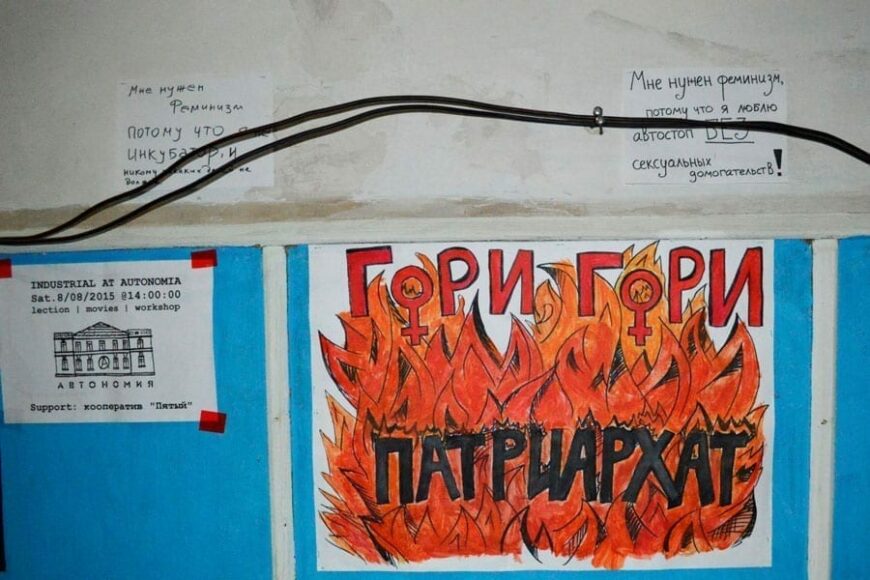 Мне нужен
Феминизм
ПОТОМУ ЧТО Я не
ИНКУБАТОР, И
никому не
Мне нужен феминизм,
потому что я люблю
автостоп БЕЗ
сексуальных
домогательств!
INDUSTRIAL AT AUTONOMIA
Sat.8/08/2015 @14:00:00
lection | movies | workshop
АВТОНОМИЯ
Support: кооператив "Пятый"
ГОРИ ГОРИ
ПАТРИАРХАТ